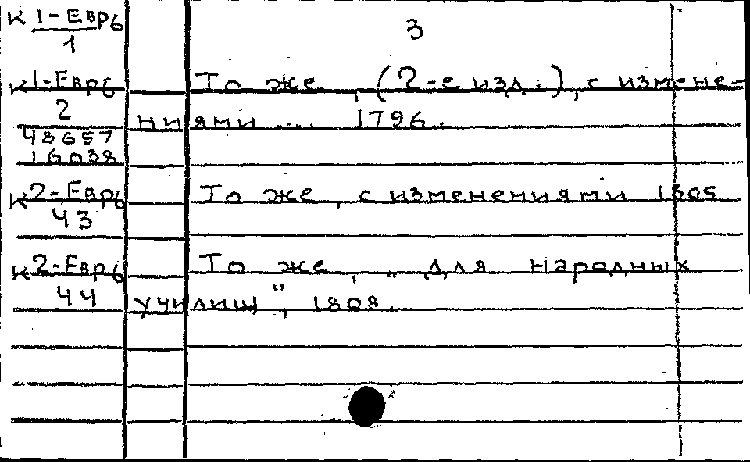 К 1-Евр6 3
1
К1-Евр6 То же, (2-е изд.), с измене-
2 ниями ... 1796.
48657
16038
К2-Евр6 То же, с изменениями 1805
43
К2-Евр6 То же, „для народных
44 училищ", 1808.